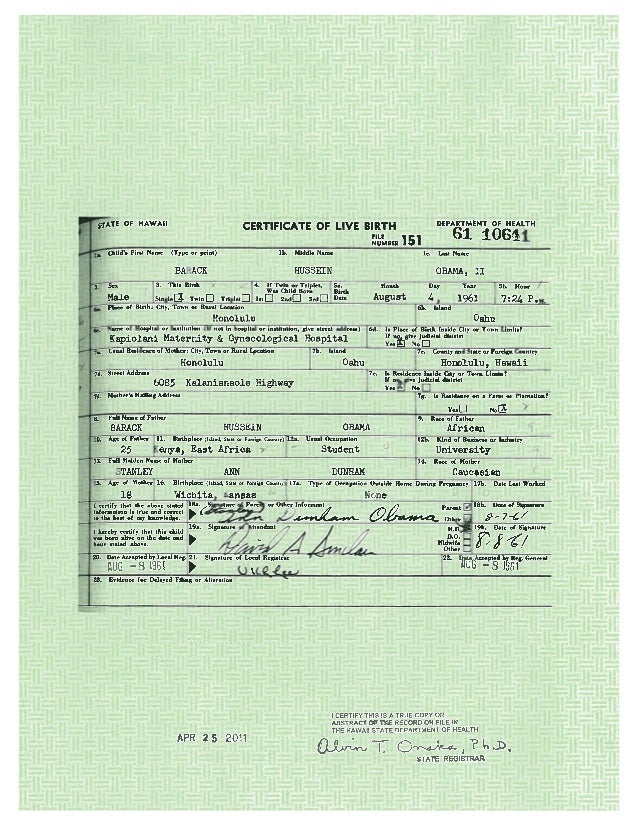 STATE OF HAWAII CERTIFICATE OF LIVE BIRTH DEPARTMENT OF HEALTH
FILE NUMBER 151 61 10641
1a. Child's First Name (Type or print) 1b. Middle Name 1c. Last Name
BARACK HUSSEIN OBAMA, II
2. Sex 3. This Birth 4. If Twin or Triplet, Was Child Born 5a. Birth Date Month Day Year 5b. Hour
Male Single X Twin Triplet 1st 2nd 3rd August 4, 1961 7:24 P.M.
6a. Place of Birth: City, Town or Rural Location 6b. Island
Honolulu Oahu
6c. Name of Hospital or Institution (If not in hospital or institution, give street address) 6d. Is Place of Birth Inside City or Town Limits? If no, give judicial district
Kapiolani Maternity & Gynecological Hospital Yes X No
7a. Usual Residence of Mother: City, Town or Rural Location 7b. Island 7c. County and State or Foreign Country
Honolulu Oahu Honolulu, Hawaii
7d. Street Address 7e. Is Residence Inside City or Town Limits? If no, give judicial district
6085 Kalanianaole Highway Yes X No
7f. Mother's Mailing Address 7g. Is Residence on a Farm or Plantation?
Yes No X
8. Full Name of Father 9. Race of Father
BARACK HUSSEIN OBAMA African
10. Age of Father 11. Birthplace (Island, State or Foreign Country) 12a. Usual Occupation 12b. Kind of Business or Industry
25 Kenya, East Africa Student University
13. Full Maiden Name of Mother 14. Race of Mother
STANLEY ANN DUNHAM Caucasian
15. Age of Mother 16. Birthplace (Island, State or Foreign Country) 17a. Type of Occupation Outside Home During Pregnancy 17b. Date Last Worked
18 Wichita, Kansas None
I certify that the above stated information is true and correct to the best of my knowledge. 18a. Signature of Parent or Other Informant Parent Other 18b. Date of Signature
Ann Dunham Obama 8-7-61
I hereby certify that this child was born alive on the date and hour stated above. 19a. Signature of Attendant M.D. D.O. Midwife Other 19b. Date of Signature
David A Sinclair 8-8-61
20. Date Accepted by Local Reg. 21. Signature of Local Registrar 22. Date Accepted by Reg. General
AUG -8 1961 AUG -8 1961
23. Evidence for Delayed Filing or Alteration
I CERTIFY THIS IS A TRUE COPY OR
ABSTRACT OF THE RECORD ON FILE IN
THE HAWAII STATE DEPARTMENT OF HEALTH
APR 25 2011
Alvin T. Onaka, Ph.D.
STATE REGISTRAR